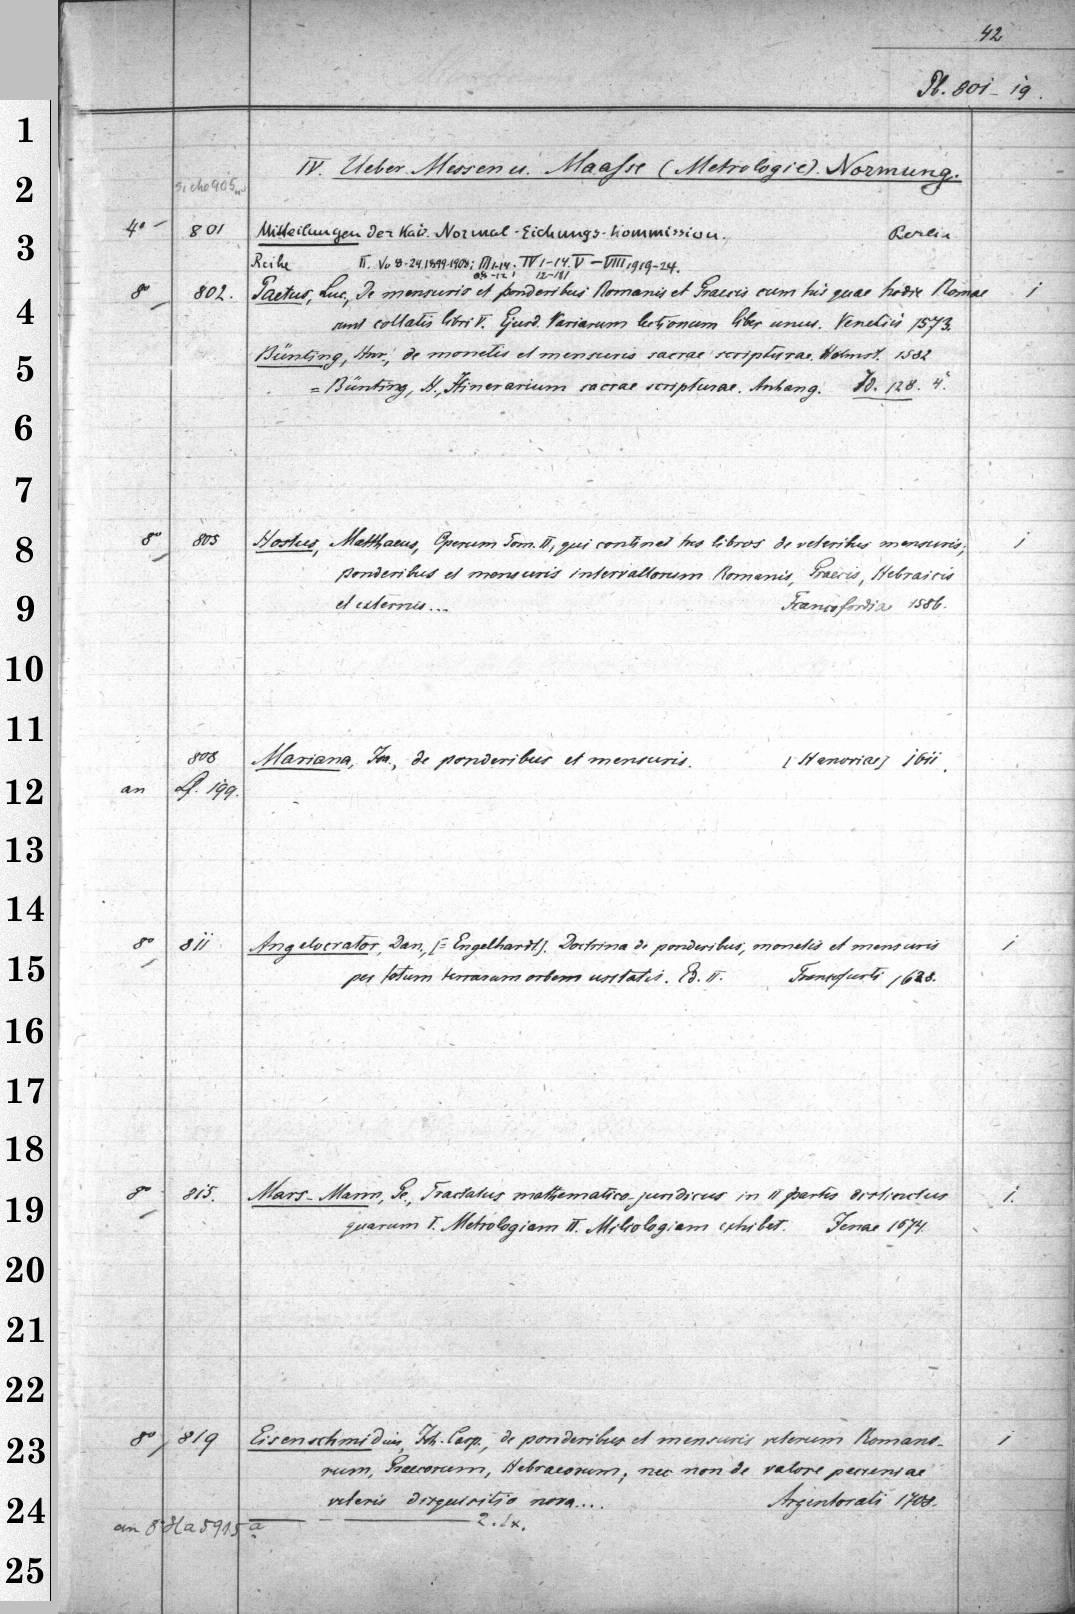 42
Pb. 801-19.
IV. Ueber Messen u. Maasse (Metrologie). Normung.
siehe 905
4° 801 Mitteilungen der Kais. Normal-Eichungs-Kommission. Berlin
Reihe II. No 8-24.1899-1908; III 1-14; IV 1-14. V-VIII 1919-24.
8° 802. Paetus, Luc., De mensuris et ponderibus Romanis et Graecis cum his quae hodie Romae 1
sunt collatis libri V. Ejusd. Variarum lectionum liber unus. Venetiis 1573.
Bünting, Hnr., de monetis et mensuris sacrae scripturae. Helmst. 1582
= Bünting, H., Itinerarium sacrae scripturae. Anhang. 128. 4°.
8° 805 Hostus, Matthaeus, Operum Tom. II, qui continet tres libros de veteribus mensuris, 1
ponderibus et mensuris intervallorum Romanis, Graecis, Hebraicis
et externis... Francofordiae 1586.
808 Mariana, Jo., de ponderibus et mensuris. [Hanoviae] 1611.
an 199.
8° 811 Angelocrator, Dan., [= Engelhardt]. Doctrina de ponderibus, monetis et mensuris 1
per totum terrarum orbem usitatis. Ed. II. Francfurti 1628.
8° 815. Mars-Mann, Ge., Tractatus mathematico-juridicus in II partes distinctus 1.
quarum I. Metrologiam II. exhibet. Jenae 1674.
8° 819 Eisenschmidius, Joh. Casp., de ponderibus et mensuris veterum Romano- 1
rum, Graecorum, Hebraeorum, nec non de valore pecuniae
veteris disquisitio nova.... Argentorati 1708.
an 8° Ha 5915 a 2. Ex.
1
2
3
4
5
6
7
8
9
10
11
12
13
14
15
16
17
18
19
20
21
22
23
24
25